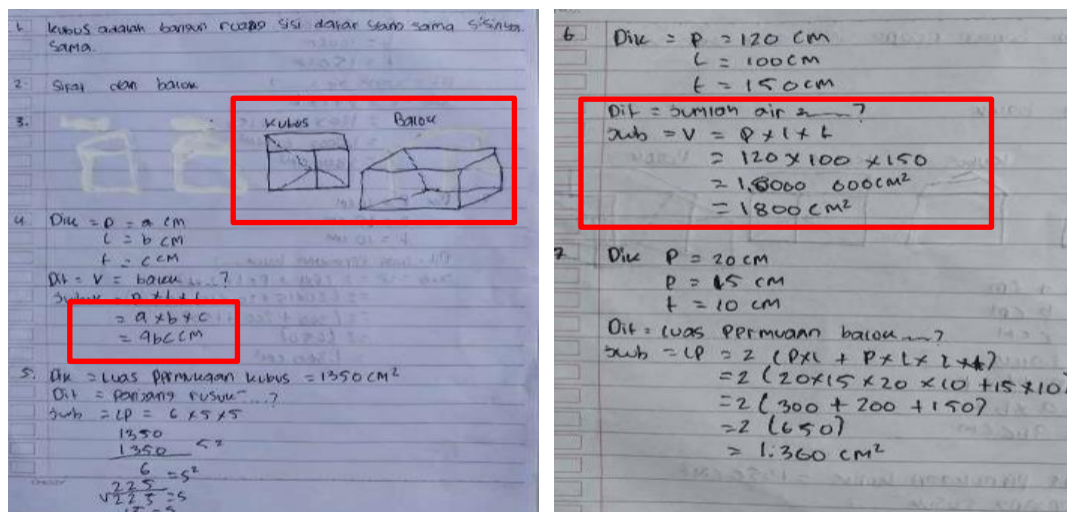 1. Kubus adalah bangun ruang sisi datar yang sama sisinya
sama.
2. Sifat dan balok
3. Kubus Balok
4. Dik = P = a cm
l = b cm
t = c cm
Dit = V = balok ...?
= a x b x c
= abc cm
5. Dik = Luas permukaan kubus = 1350 cm²
Dit = panjang rusuk ...?
Jwb = LP = 6 x s x s
1350
1350 s²
6 = s²
225
√225 = s
15 = s
6 Dik = P = 120 cm
l = 100 cm
t = 150 cm
Dit = Jumlah air ...?
Jwb = V = P x l x t
= 120 x 100 x 150
= 1.8000 000 cm²
= 1800 cm²
7. Dik P = 20 cm
P = 15 cm
t = 10 cm
Dit = Luas Permuaan balok ...?
Jwb = LP = 2 (Pxl + P x l x l x t)
= 2 (20x15 x 20 x 10 + 15 x 10)
= 2 (300 + 200 + 150)
= 2 (650)
= 1.360 cm²